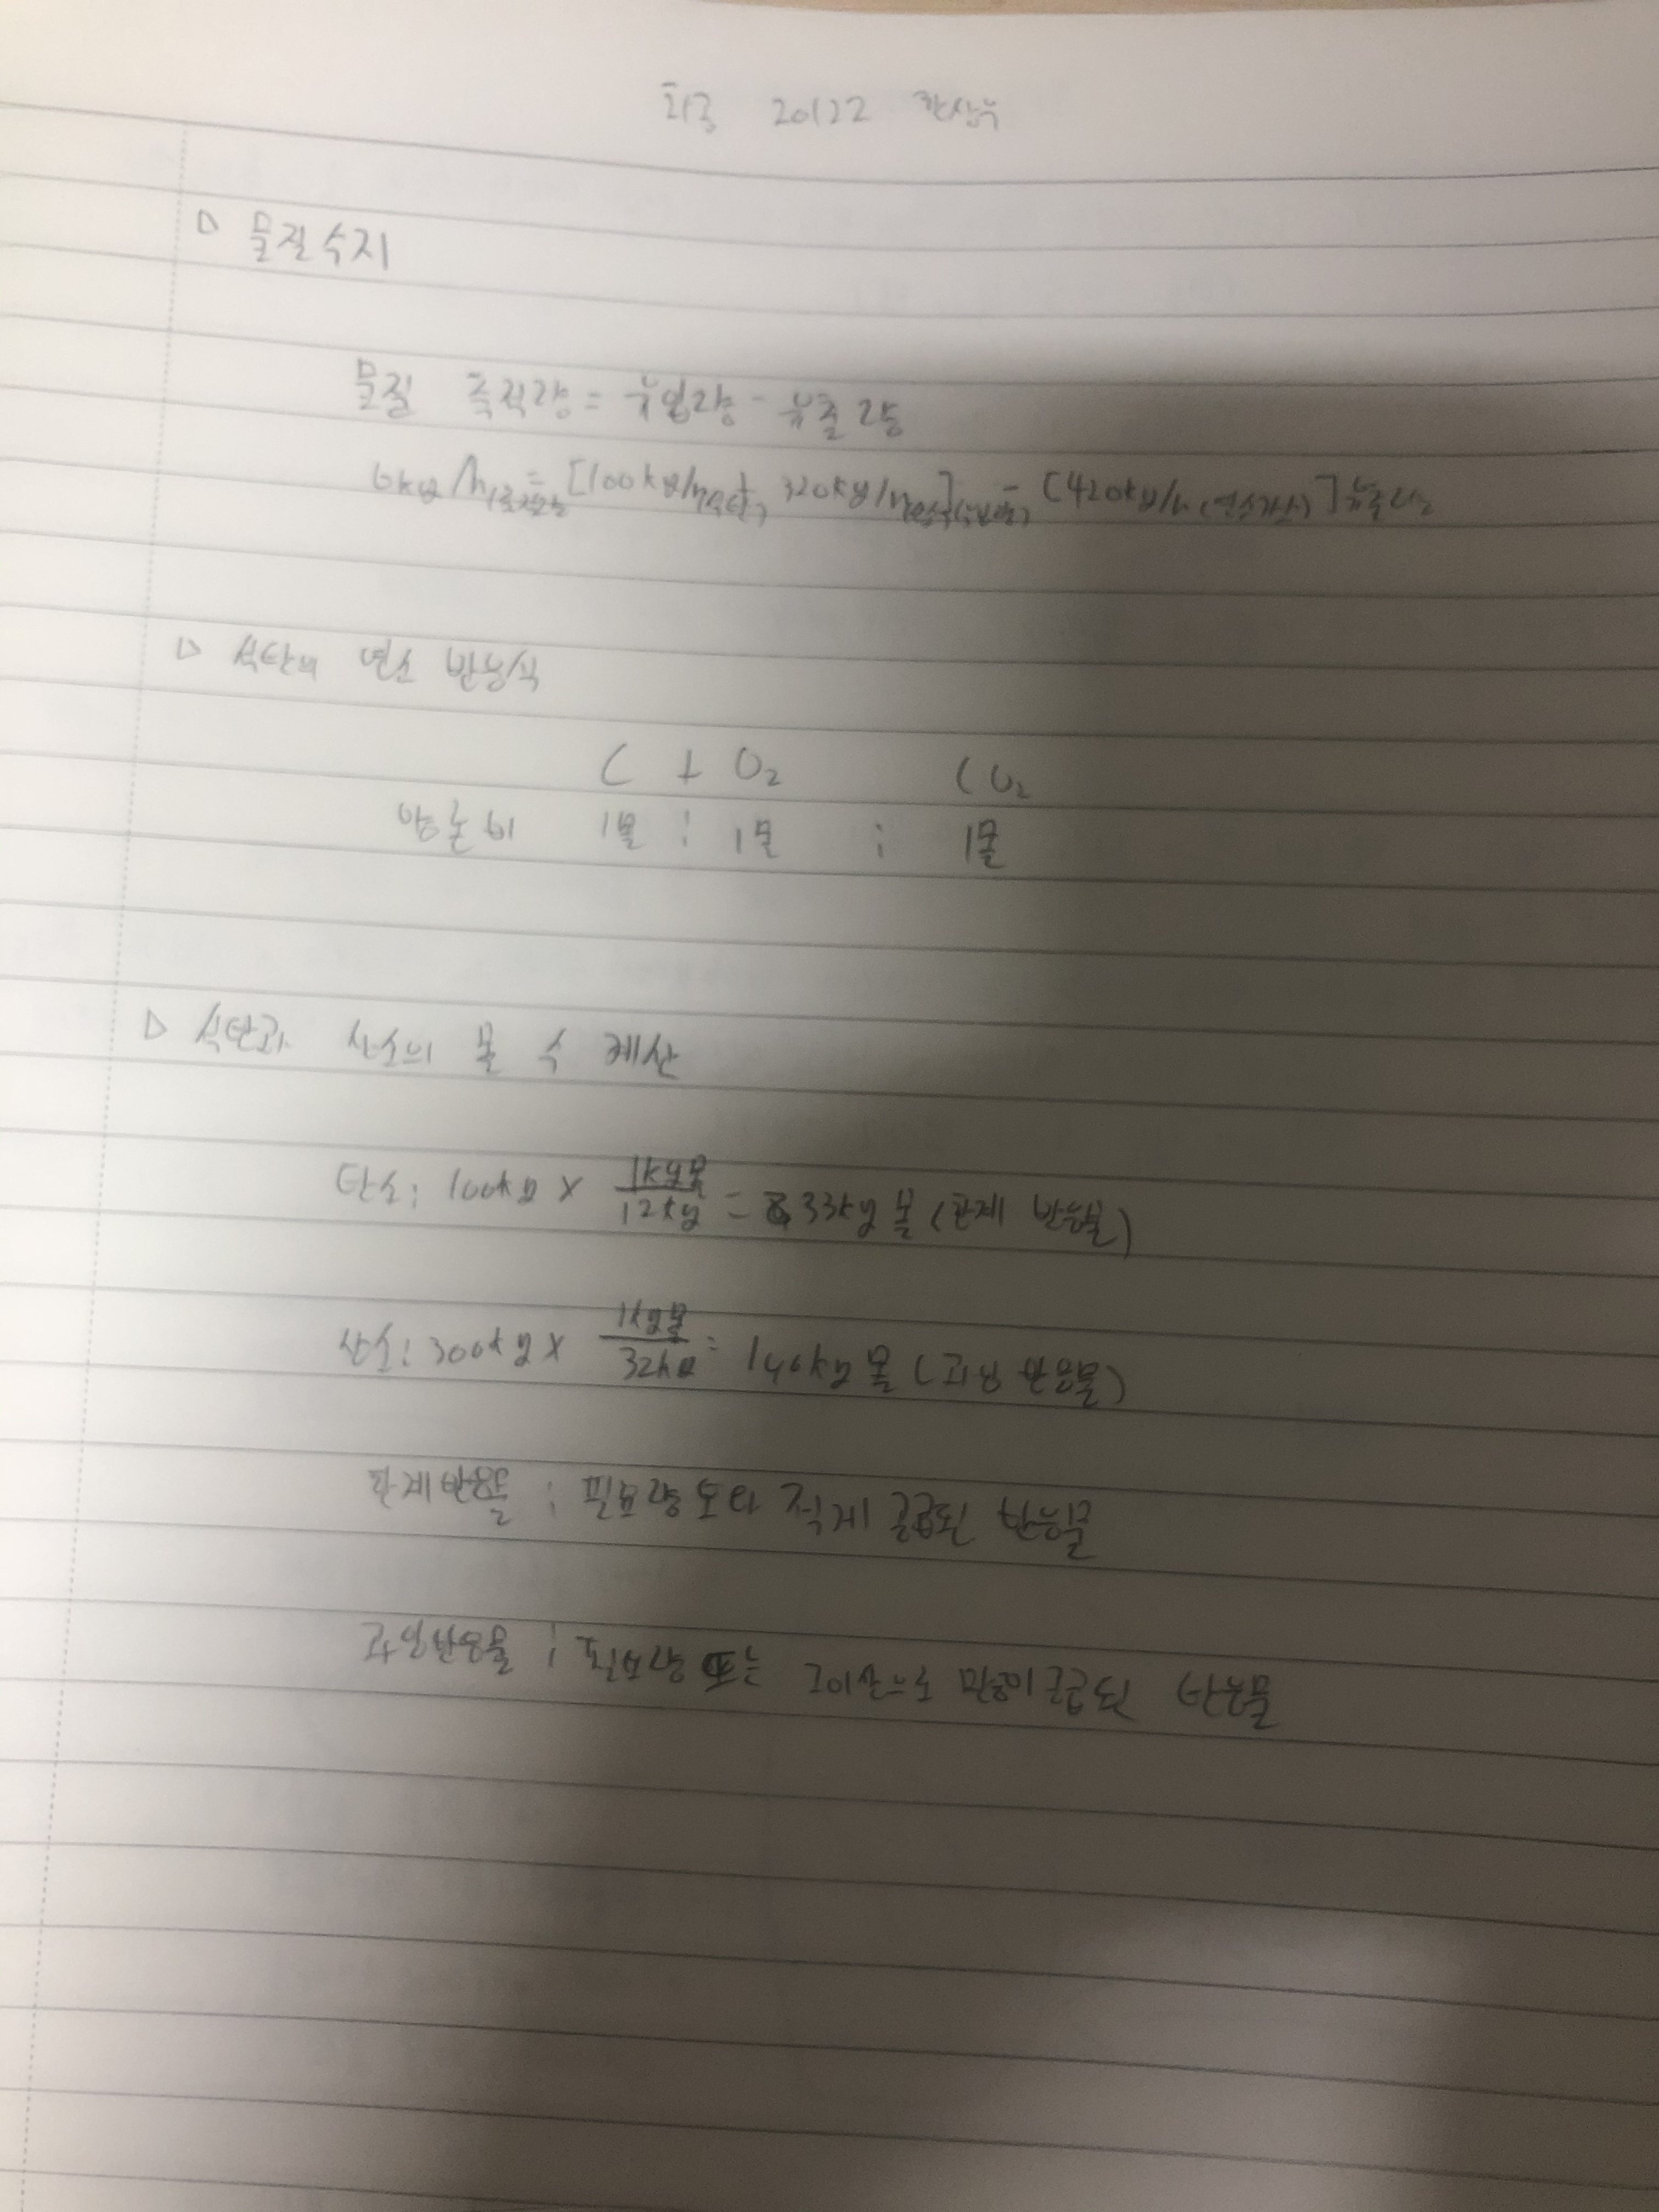 20122
▷ 물질수지
물질 축적량 = 유입량 - 유출량
0kg/h = [100kg/h(석탄), 320kg/h] - [420kg/h (연소가스)] 유출
▷ 석탄의 연소 반응식
C + O₂ CO₂
양론비 1몰 : 1몰 : 1몰
▷ 석탄과 산소의 몰 수 계산
탄소: 100kg × 1kg몰/12kg = 8.33kg몰 (한계 반응물)
산소: 300kg × 1kg몰/32kg = 140kg몰 (과잉 반응물)
한계반응물 : 필요량 보다 적게 공급된 반응물
과잉반응물 : 필요량 또는 그이상으로 많이 공급된 반응물